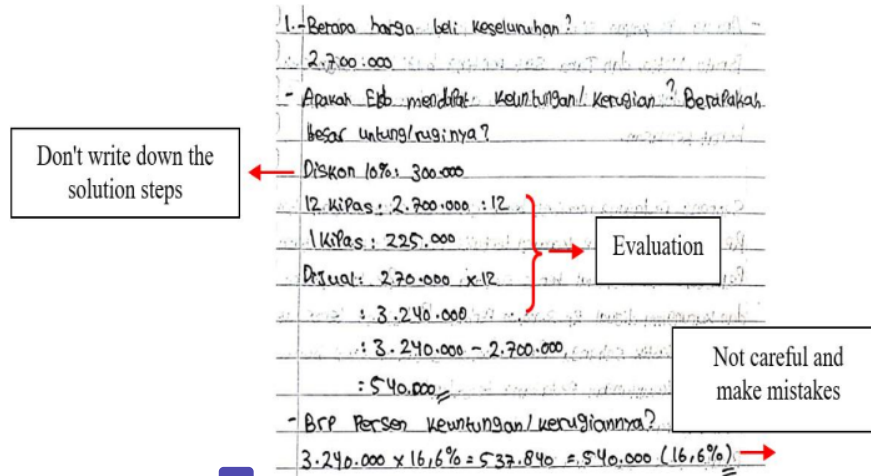 1.-Berapa harga beli keseluruhan?
2.700.000
- Apakah Edo mendapat keuntungan/kerugian? Berapakah
besar untung/ruginya?
Don't write down the
solution steps
Diskon 10%: 300.000
12 Kipas: 2.700.000 :12
1 Kipas: 225.000
Dijual: 270.000 x12
: 3.240.000
: 3.240.000 - 2.700.000
= 540.000
Evaluation
Not careful and
make mistakes
- Brp Persen keuntungan/kerugiannya?
3.240.000 x 16,6% = 537.840 = 540.000 (16,6%)